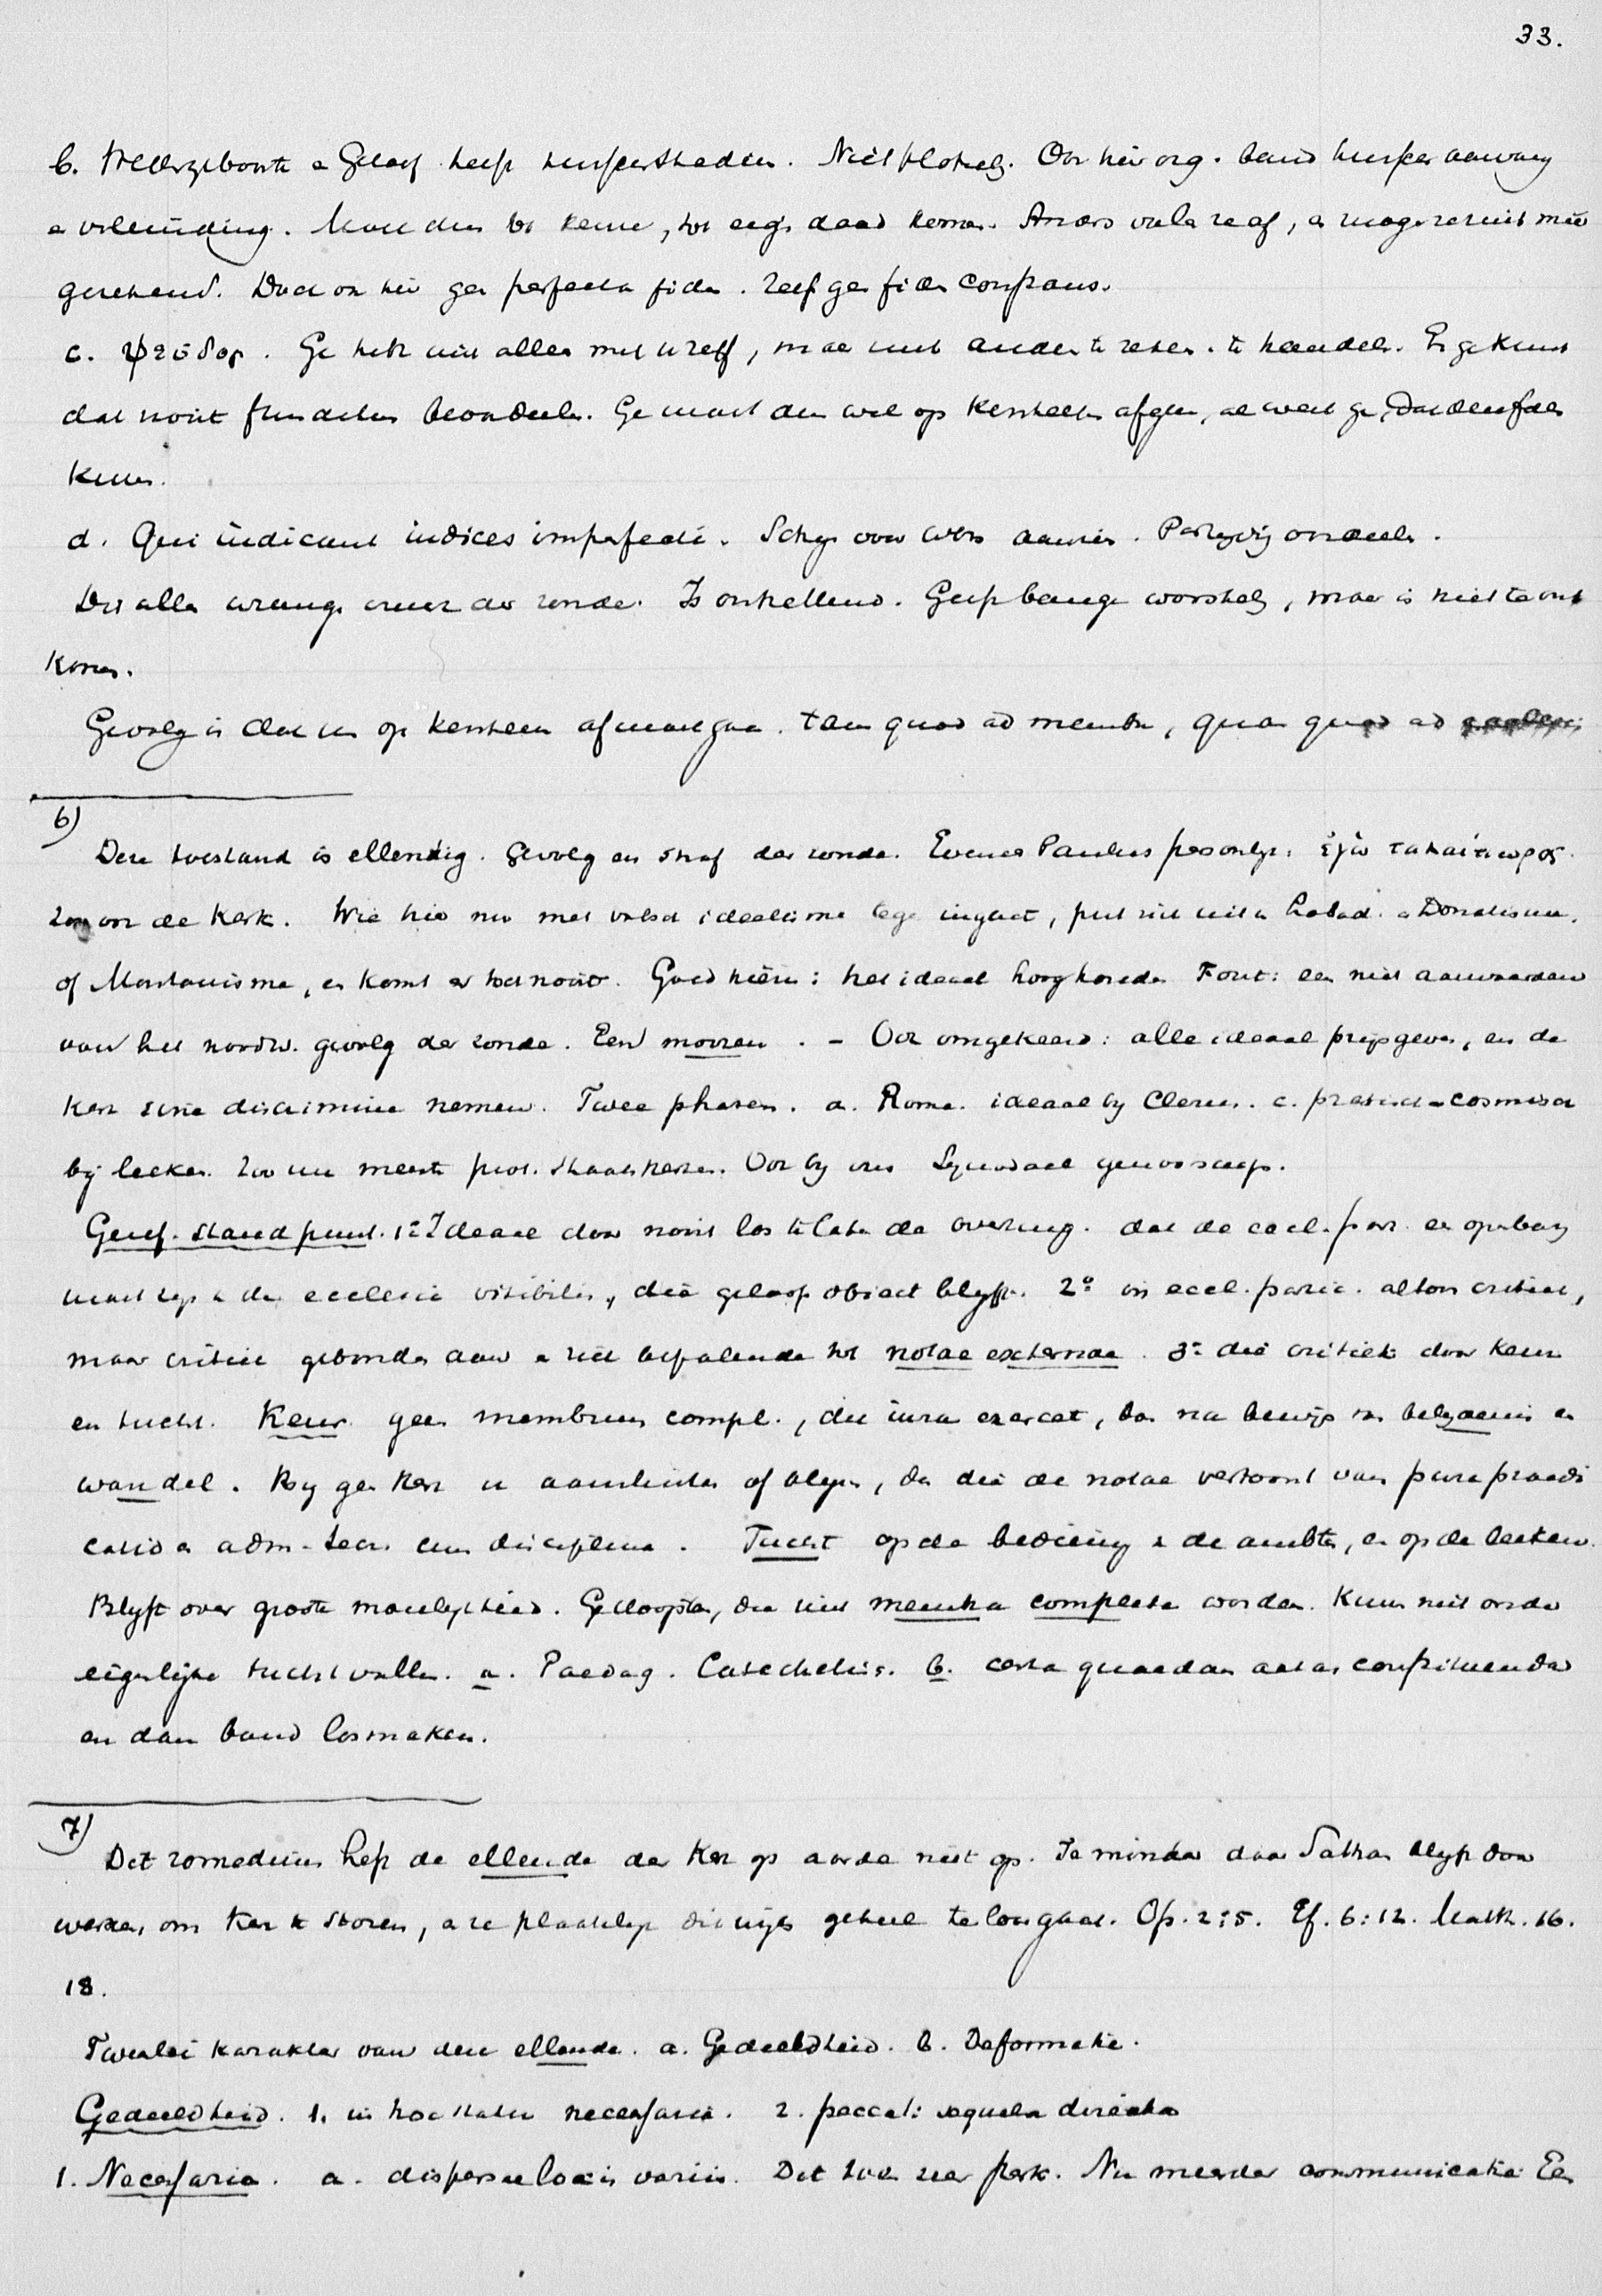 33.
b. Wedergeboorte e Geloof heeft tusschenstadien. Niet plotselg. Ook hier org. band tusschen aanvang
e voleinding. Moet dus tot kennis, tot eig. daad komen. Anders valle ze af, e moge ze niet mee
gerekend. Doch ook hier gee perfecta fides. Zelf gee fides constans.
c. ψεῦδος. Ge hebt niet alleen met uzelf, maar met anderen te reken. te handelen. En ge kunt
dat nooit beoordeelen. Ge moet dus wel op kenteeken afgaan, al weet ge, dat deze falen
kunnen.
d. Qui iudicant iudices imperfecti. Schijn voor wezen aanzien. Partijdig oordeelen.
Dit alles wrange vrucht der zonde. Is ontstellend. Geeft bange worstelg, maar is niet te ont
komen.
Gevolg is dat men op kenteeken af moet gaan. tam quoad ad membra, quam quoad ad
6)
Deze toestand is ellendig. Gevolg en straf der zonde. Evenals Paulus persoonlijk: ἐγὼ ταλαίπωρος.
Zoo ook de Kerk. Wie hier nu met valsch idealisme tege ingaat, put zich uit in Labad. e Donatisme.
of Montanisme, en komt er toch nooit. Goed hierin: het ideaal hoog houden Fout: een niet aanvaarden
van het noodw. gevolg der zonde. Een morren. - Ook omgekeerd: alle ideaal prijsgeven, en de
Kerk sine discrimine nemen. Twee phasen. a. Rome. ideaal bij Clerus. c. practisch-cosmisch
bij leeken. Zoo nu meeste prot. Staatskerken. Ook bij ons Synodaal genootschap.
Geref. standpunt. 1º Ideaal door nooit los te laten de overtuig. dat de eccl. par. en openbarg
moet zijn de ecclesia visibilis, die geloofsobject blijft. 2º in eccl. partic. altoos critiek,
maar critiek gebonden aan e zich bepalende tot notae externae. 3º die critiek door keur
en tucht. Keur. geen membrum compl., die iura exercet, dan na bewijs van belijdenis en
wandel. Bij gee Kerk u aansluiten of blijven, dan die de notae vertoont van pura praedi
catio e adm. Sacr. cum disciplina. Tucht op de bediening e de ambten, en op de leeken.
Blijft over groote moeilijkheid. Gedoopten, die niet membra completa worden. Kunn. niet onder
eigenlijke tucht vallen. a. Paedag. Catechetisch. b. certa quaedam aetas constituenda
en dan band losmaken.
7)
Dit remedium heft de ellende der Kerk op aarde niet op. Te minder daar Sathan blijft door
werken, om Kerk te storen, e ze plaatselijk dikwijls geheel te loor gaat. Op. 2:5. Ef. 6:12. Matth. 16.
18.
Tweeërlei karakter van deze ellende. a. Gedeeldheid. b. Deformatie.
Gedeeldheid. 1. in hoc statu necessaria. 2. peccati sequela directa
1. Necessaria. a. dispersae locis variis. Dit zeer sterk. Nu meerder communicatie. Een